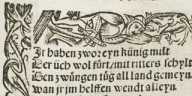 Ir haben zwo: eyn künig milt
Der üch wol fürt / mit ritters schylt
Den zwüngen tůg all land gemeyn
wan jr jm helffen wendt alleyn